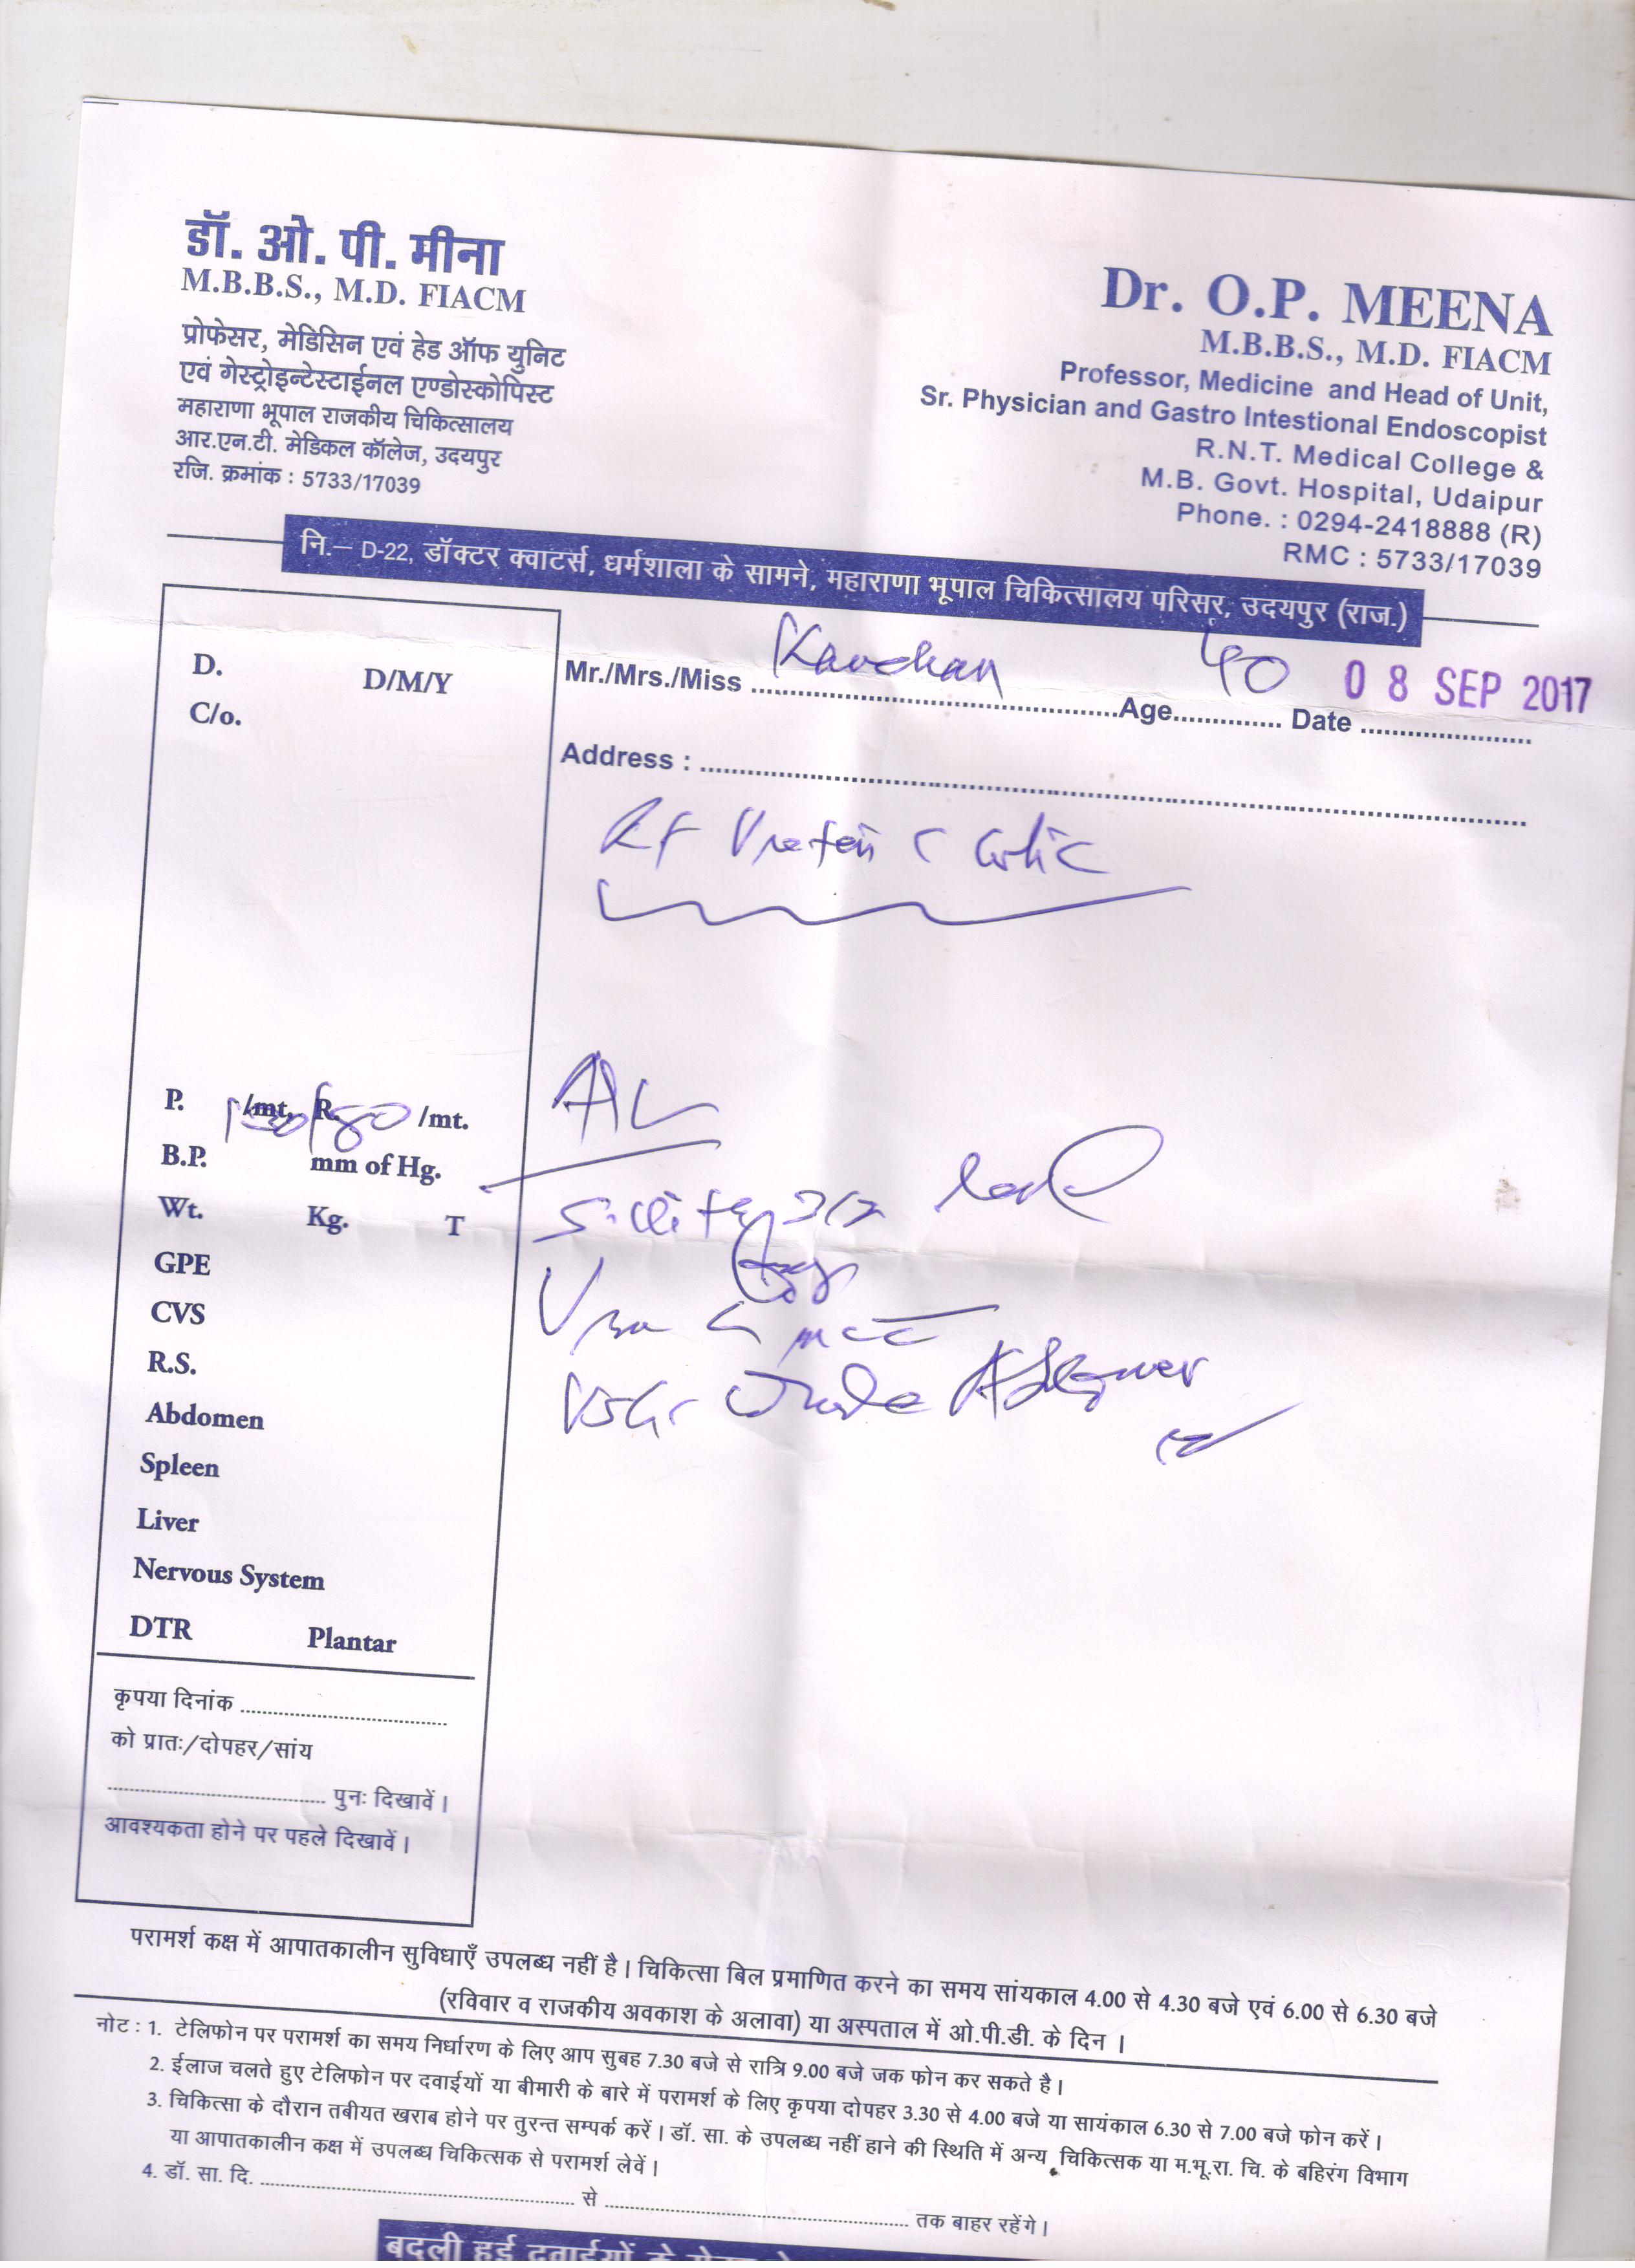 डॉ. ओ. पी. मीना
M.B.B.S., M.D. FIACM
प्रोफेसर, मेडिसिन एवं हेड ऑफ युनिट
एवं गेस्ट्रोइन्टेस्टाईनल एण्डोस्कोपिस्ट
महाराणा भूपाल राजकीय चिकित्सालय
आर.एन.टी. मेडिकल कॉलेज, उदयपुर
रजि. क्रमांक : 5733/17039
Dr. O.P. MEENA
M.B.B.S., M.D. FIACM
Professor, Medicine and Head of Unit,
Sr. Physician and Gastro Intestional Endoscopist
R.N.T. Medical College &
M.B. Govt. Hospital, Udaipur
Phone. : 0294-2418888 (R)
RMC : 5733/17039
नि.– D-22, डॉक्टर क्वाटर्स, धर्मशाला के सामने, महाराणा भूपाल चिकित्सालय परिसर, उदयपुर (राज.)
Mr./Mrs./Miss ........ Age 40 Date 08 SEP 2017
Address :
colic
D. D/M/Y
C/o.
P. /mt. R. /mt.
B.P. mm of Hg.
Wt. Kg. T
GPE
CVS
R.S.
Abdomen
Spleen
Liver
Nervous System
DTR Plantar
कृपया दिनांक
को प्रातः/दोपहर/सांय
पुनः दिखावें।
आवश्यकता होने पर पहले दिखावें।
परामर्श कक्ष में आपातकालीन सुविधाएँ उपलब्ध नहीं है। चिकित्सा बिल प्रमाणित करने का समय सांयकाल 4.00 से 4.30 बजे एवं 6.00 से 6.30 बजे
(रविवार व राजकीय अवकाश के अलावा) या अस्पताल में ओ.पी.डी. के दिन ।
नोट : 1. टेलिफोन पर परामर्श का समय निर्धारण के लिए आप सुबह 7.30 बजे से रात्रि 9.00 बजे जक फोन कर सकते है।
2. ईलाज चलते हुए टेलिफोन पर दवाईयों या बीमारी के बारे में परामर्श के लिए कृपया दोपहर 3.30 से 4.00 बजे या सायंकाल 6.30 से 7.00 बजे फोन करें।
3. चिकित्सा के दौरान तबीयत खराब होने पर तुरन्त सम्पर्क करें। डॉ. सा. के उपलब्ध नहीं हाने की स्थिति में अन्य चिकित्सक या म.भू.रा. चि. के बहिरंग विभाग
या आपातकालीन कक्ष में उपलब्ध चिकित्सक से परामर्श लेवें।
4. डॉ. सा. दि. ........ से ........ तक बाहर रहेंगे।
बदली हुई दवाईयों के